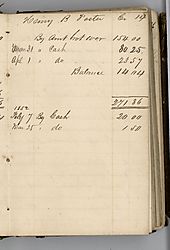 Henry B Foster Cr
By Amt bot over 154.00
Mar 31 " Cash 80.25
Apl 1 " do 23.57
Balance 14.04
271.86
1852
Feby 7 By Cash 20.00
Mar 25 " do 1.50